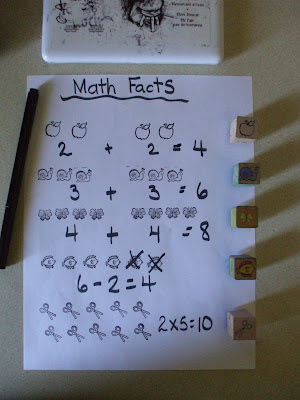 Math Facts
2 + 2 = 4
3 + 3 = 6
4 + 4 = 8
6 - 2 = 4
2x5=10